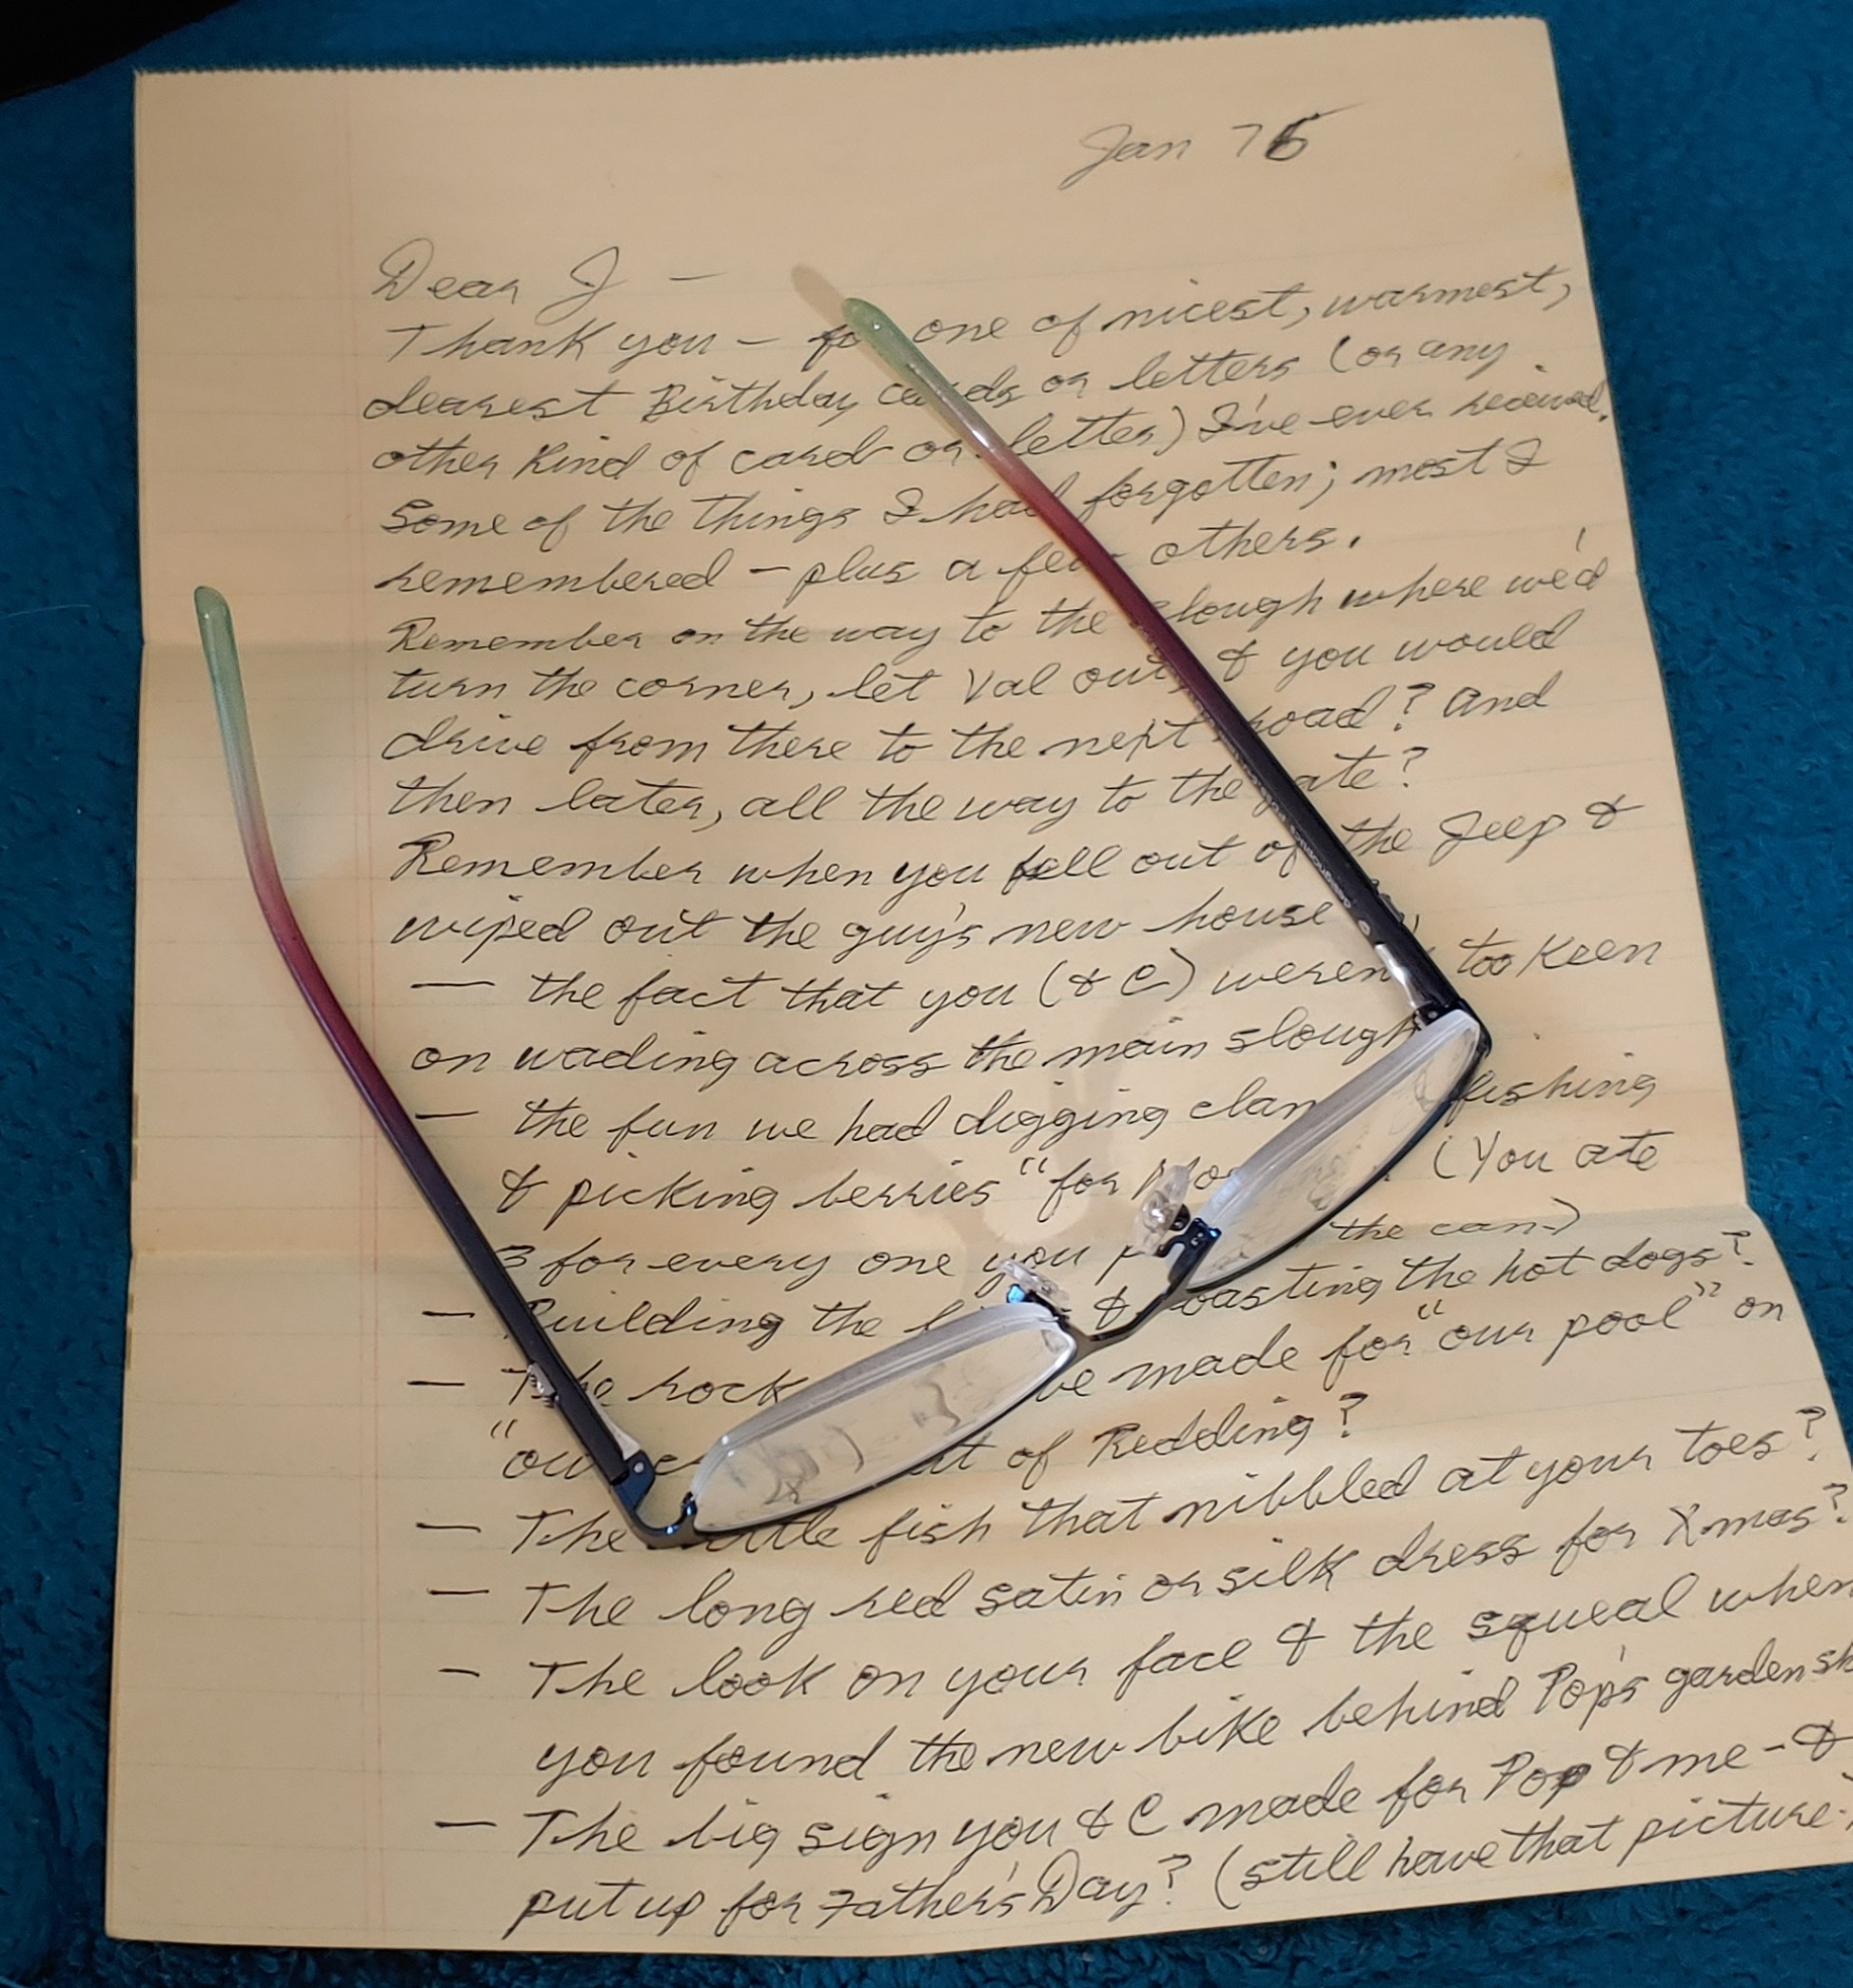 Jan 76
Dear J —
Thank you — for one of nicest, warmest,
dearest Birthday cards or letters (or any
other kind of card or letter) I've ever received.
Some of the things I had forgotten; most I
remembered — plus a few others.
Remember on the way to the slough where we'd
turn the corner, let Val out, & you would
drive from there to the next road? And
then later, all the way to the gate?
Remember when you fell out of the Jeep &
wiped out the guy's new house
— the fact that you (& C) weren't too keen
on wading across the main slough
— the fun we had digging clam fishing
& picking berries "for (You ate
3 for every one you the can.)
— Building the & roasting the hot dogs?
— The rock we made for "our pool" on
"our of Redding?
— The little fish that nibbled at your toes?
— The long red satin or silk dress for Xmas?
— The look on your face & the squeal when
you found the new bike behind Pop's garden
— The big sign you & C made for Pop & me - &
put up for Father's Day? (still have that picture.